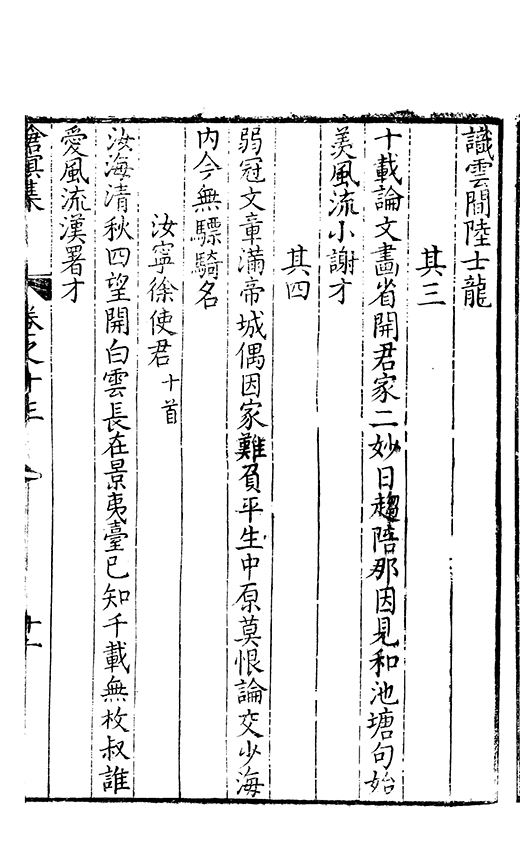 識雲間陸士龍
其三
十載論文畫省開君家二妙日趨陪那因見和池塘句始
羨風流小謝才
其四
弱冠文章滿帝城偶因家難負平生中原莫恨論交少海
内今無驃騎名
汝寧徐使君十首
汝海清秋四望開白雲長在景夷臺已知千載無枚叔誰
愛風流漢署才
滄溟集 卷之十三 十一